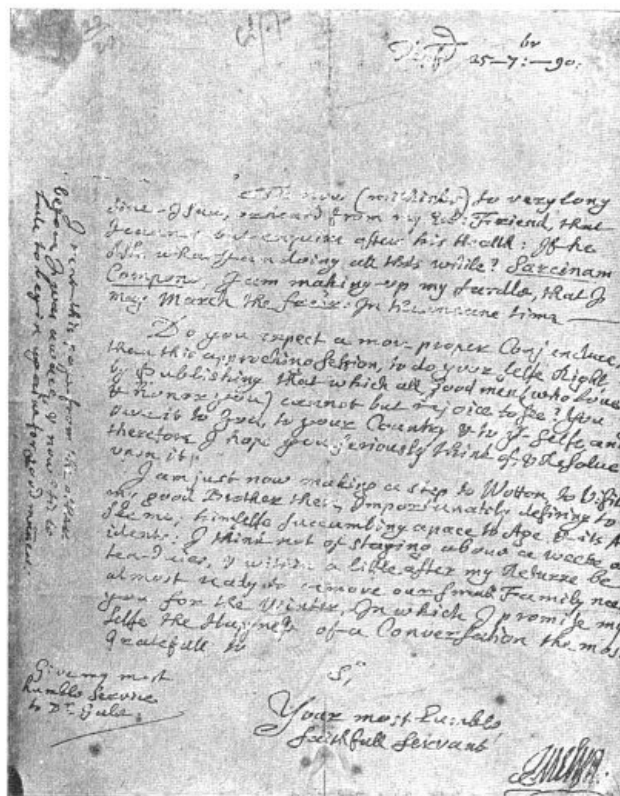 25–7:br–90.
now (methinks) so very long
since I saw, or heard from my Friend, that
I cannot but enquire after his Health: If he
aske what I am doing all this while? Sarcinam
Compono, I am making up my fardle, that I
may March the freer. In the meane time
Do you expect a more proper Conjuncture,
than this approching Session, to do your selfe Right
by Publishing that which all good men (who love
& honor you) cannot but rejoice to see? You
owe it to God, to your Country & to yr Selfe, and
therefore I hope you seriously think of, & Resolve
upon it.
I am just now making a step to Wotton, to Visite
my good Brother there, Importunately desiring to
See me; himselfe succumbing apace to Age & its
idents: I think not of staying above a weeke or
ten daies, & within a little after my Returne be
almost ready to remove our small Family neere
you for the Winter, In which I promise my
Selfe the Happinesse of a Conversation the most
Gratefull to
Sr,
Your most humble
faithfull Servant
Give my most
humble Service
to Dr. Gale.
before I was aware, & now 'tis to
late to begin againe for good manners.